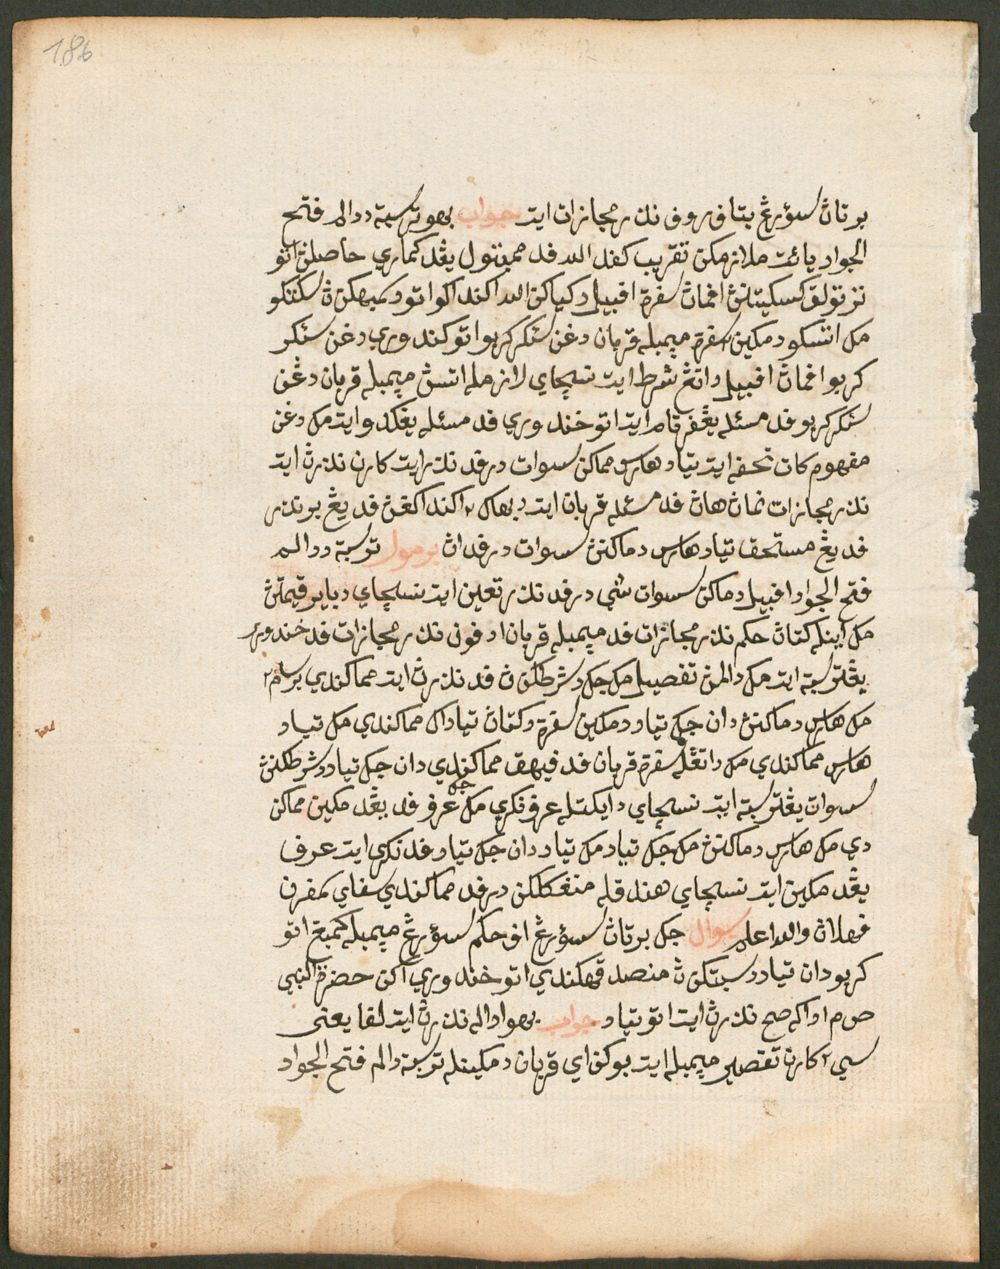 186
برتاڽ سؤرڠ بتاڤ روڤ نذر مجازات ايت جواب بهو ترسبة ددالم فتح
الجواد يائت ملازمكن تقريب كفد الله فد ممبتول يڠد كماري حاصلڽ اتو
نزتولق كسكيتنڽ اڤمان سفرة اڤبيل دكياكن الله اكند اكو اتو دكمبهكن ڽ سكتكو
مك اتسكو دمكين٢ سفرة ميمبله قربان دڠن سئيكر كربو اتو كندوري دڠن سئيكر
كربو اڤمان اڤبيل داتڠ شرط ايت نسچاي لازمله اتسڽ ميمبله قربان دڠن
سئيكر كربو فد مسئله يڠفرتام ايت اتو خندوري فد مسئله يڠكدوا ايت مك دڠن
مفهوم كات تحفه ايت تياد هارس مماكن سوات درفد نذر ايت كارن نذرڽ ايت
نذر مجازات نمان هاڽ فد مسئله قربان ايت دبهاݢ٢كند اكندڠن فد يڠ برنذر
فد يڠ مستحق تياد هارس دماكنڽ سوات درفداڽ برمول ترسبة ددالم
فتح الجواد اڤبيل دماكن سسوات شي درفد نذر تعين ايت نسچاي دباير قيمتڽ
مك اينله كتاڽ حكم نذر مجازات فد ميمبله قربان ادفون نذر مجازات فد خندوري
يڠترسبة ايت مك دالمڽ تفصيل مك جك دشرطكن ڽ فد نذرڽ ايت مماكندي برسام٢
مك هارس دماكنڽ دان جك تياد دمكين سفرة دكتاڽ تياد اك مماكندي مك تياد
هارس مماكندي مك داتڠله سفرة قربان فد فيهق مماكندي دان جك تياد دشرطكنڽ
سسوات يڠترسبة ايت نسچاي دايكتله عرف نكري مك جك عرف فد يڠد مكين مماكن
دي مك هارس دماكنڽ مك جك تياد مك تياد دان جك تياد فد نكري ايت عرف
يڠد مكين ايت نسچاي هندقله منڠݢلكن درفد مماكندي سفاي سمفرن
فهلاڽ والله اعلم سوال جك برتاڽ سؤرڠ اڤ حكم سؤرڠ ميمبله كمبڠ اتو
كربو دان تياد دسبتكن ڽ منصدقهكندي اتو خندوري اكن حضرة النبي
ص م اداكه صح نذرڽ ايت اتو تياد جواب بهوادله نذرڽ ايت لغا يعني
سي٢ كارن تقصير ميمبله ايت بوكن اي قربان دمكينله ترسبة دالم فتح الجواد